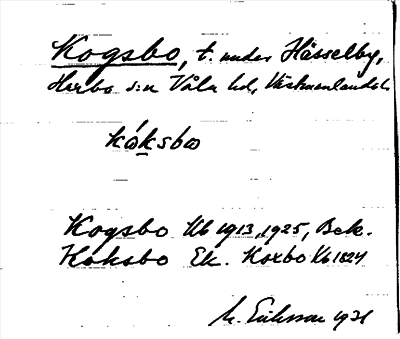 Kogsbo, t. under Hässelby,
Harbo s:n Våla hd, Västmanlands l.
kóksbo
Kogsbo Kb 1913, 1925, Bek.
Koksbo Ek. Koxbo Kb 1824
M. Eriksson 1931